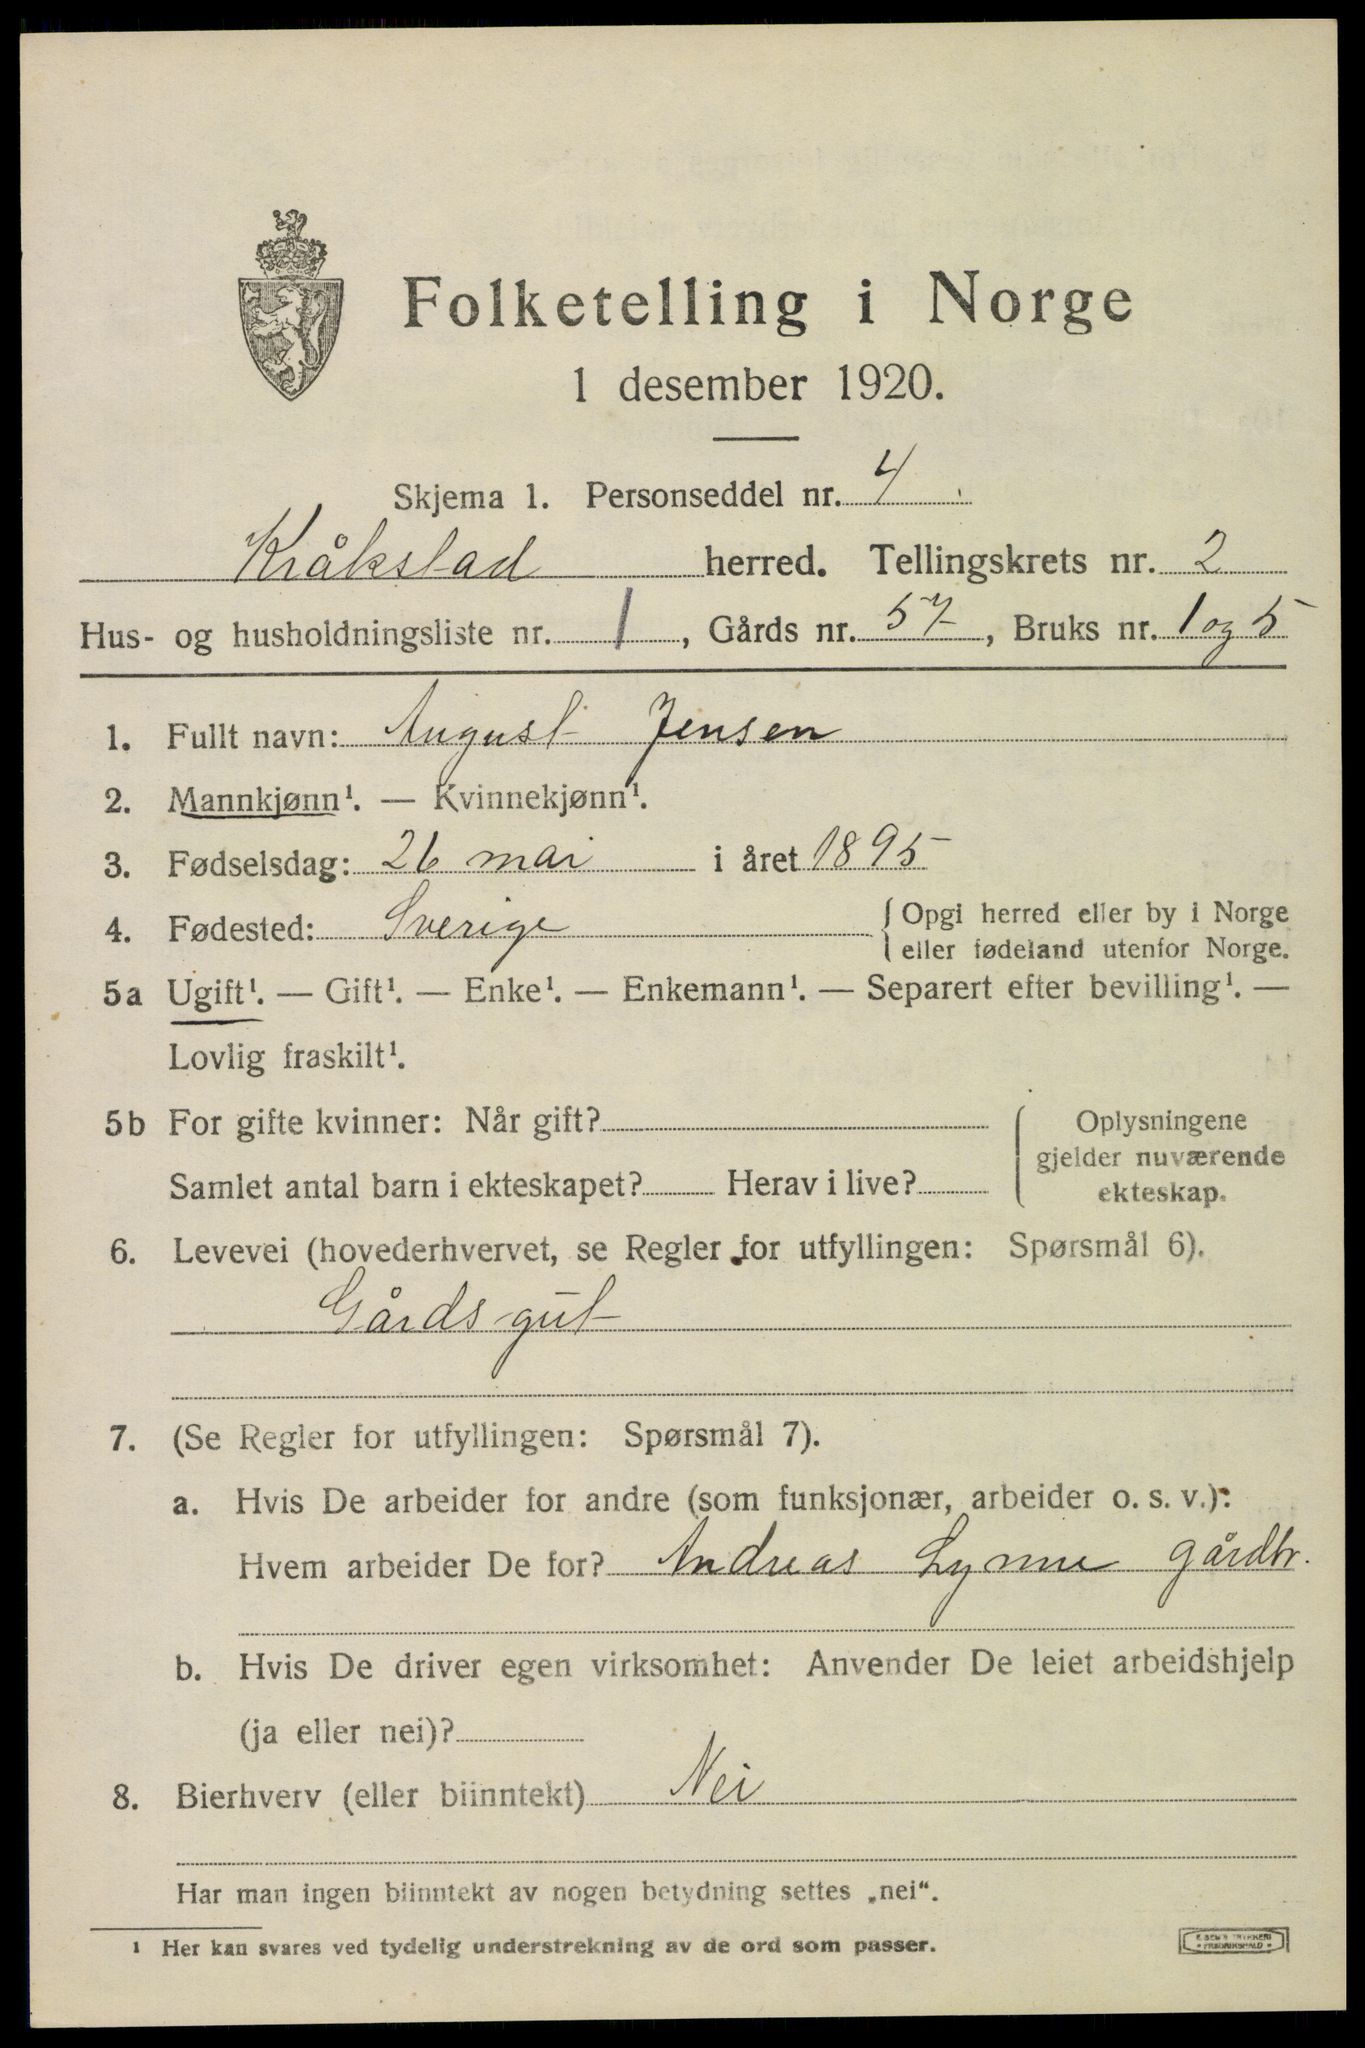 Folketelling i Norge
1 desember 1920.
Skjema 1. Personseddel nr. 4
Kråkstad herred. Tellingskrets nr. 2
Hus- og husholdningsliste nr. 1, Gårds nr. 57, Bruks nr. 1 og 5
1. Fullt navn: August Jensen
2. Mannkjønn¹. — Kvinnekjønn¹.
3. Fødselsdag: 26 mai i året 1895
4. Fødested: Sverige { Opgi herred eller by i Norge
eller fødeland utenfor Norge.
5a Ugift¹. — Gift¹. — Enke¹. — Enkemann¹. — Separert efter bevilling¹. —
Lovlig fraskilt¹.
5b For gifte kvinner: Når gift?
Samlet antal barn i ekteskapet? Herav i live?
Oplysningene
gjelder nuværende
ekteskap.
6. Levevei (hovederhvervet, se Regler for utfyllingen: Spørsmål 6).
Gårdsgut
7. (Se Regler for utfyllingen: Spørsmål 7).
a. Hvis De arbeider for andre (som funksjonær, arbeider o. s. v.):
Hvem arbeider De for? Andreas Lynne gårdbr.
b. Hvis De driver egen virksomhet: Anvender De leiet arbeidshjelp
(ja eller nei)?
8. Bierhverv (eller biinntekt) Nei
Har man ingen biinntekt av nogen betydning settes „nei“.
¹ Her kan svares ved tydelig understrekning av de ord som passer.